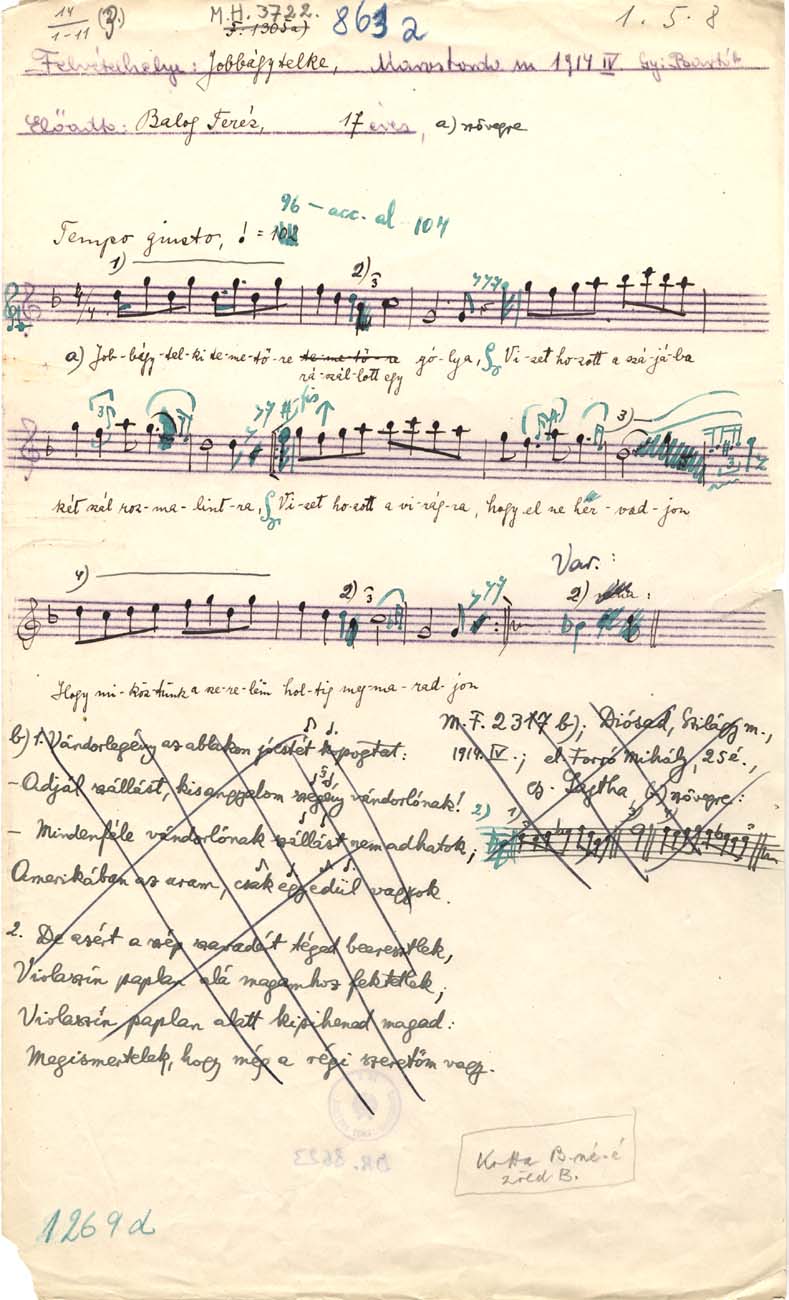 14
1-11
M.H. 3722.
863 a
1. 5. 8
Felvétel helye: Jobbágytelke, Marostorda m 1914 IV. Gy: Bartók
Előadta: Balog Teréz, 17 éves, a) szövegre
96 – acc. al 104
Tempo giusto, = 102
1)
2) 3
a) Job-bágy-tel-ki te-me-tő-re te-me-tő-re gó-lya, Vi-zet ho-zott a szá-já-ba
rá-szál-lott egy
fis
3
3)
két szál roz-ma-lint-ra, Vi-zet ho-zott a vi-rág-ra, hogy el ne hér-vad-jon
Var.:
4)
2) 3
2)
Hogy mi-köz-tünk a sze-re-lëm hol-tig mëg-ma-rad-jon
b) 1. Vándorlegény az ablakon jócstét kopogtat:
– Adjál szállást, kisangyalom szegény vándorlónak!
– Mindenféle vándorlónak szállást nem adhatok;
Amerikában az uram, csak egyedül vagyok.
2. De azért a szép szavadét téged beeresztlek,
Violaszín paplan alá magamhoz fektetlek;
Violaszín paplan alatt kipihened magad:
Megismertelek, hogy még a régi szeretőm vagy.
M.F. 2317 b); Diósad, Szilágy m.,
1914. IV.; el. Forró Mihály, 25 é.,
gy. Lajtha, b) szövegre:
2) 1)
DR. 8623
Kotta B-né-é
1269 d